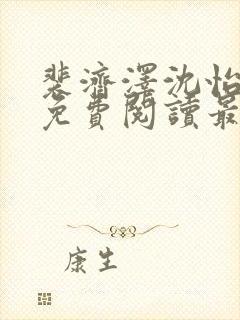 裴濟澤沈怡
免費閱讀最
康生